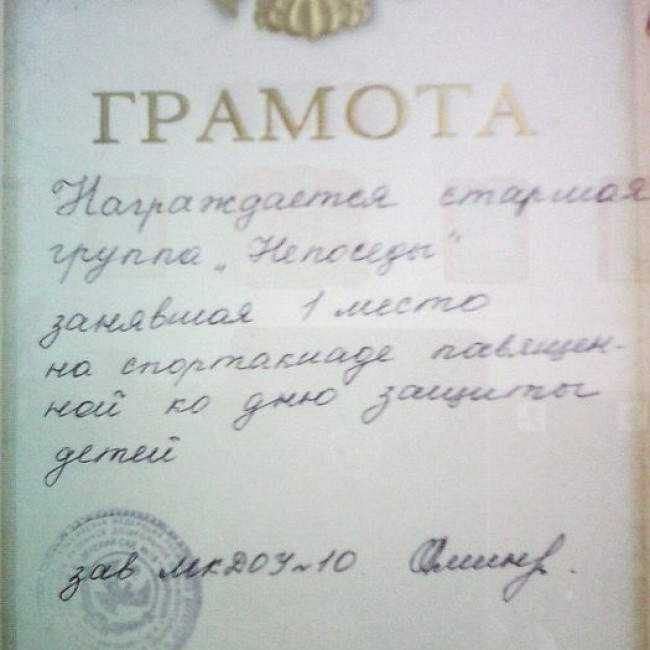 ГРАМОТА
Награждается старшая
группа „Непоседы"
занявшая 1 место
на спортакиаде павящен-
ной ко дню защиты
детей
зав МКДОУ №10